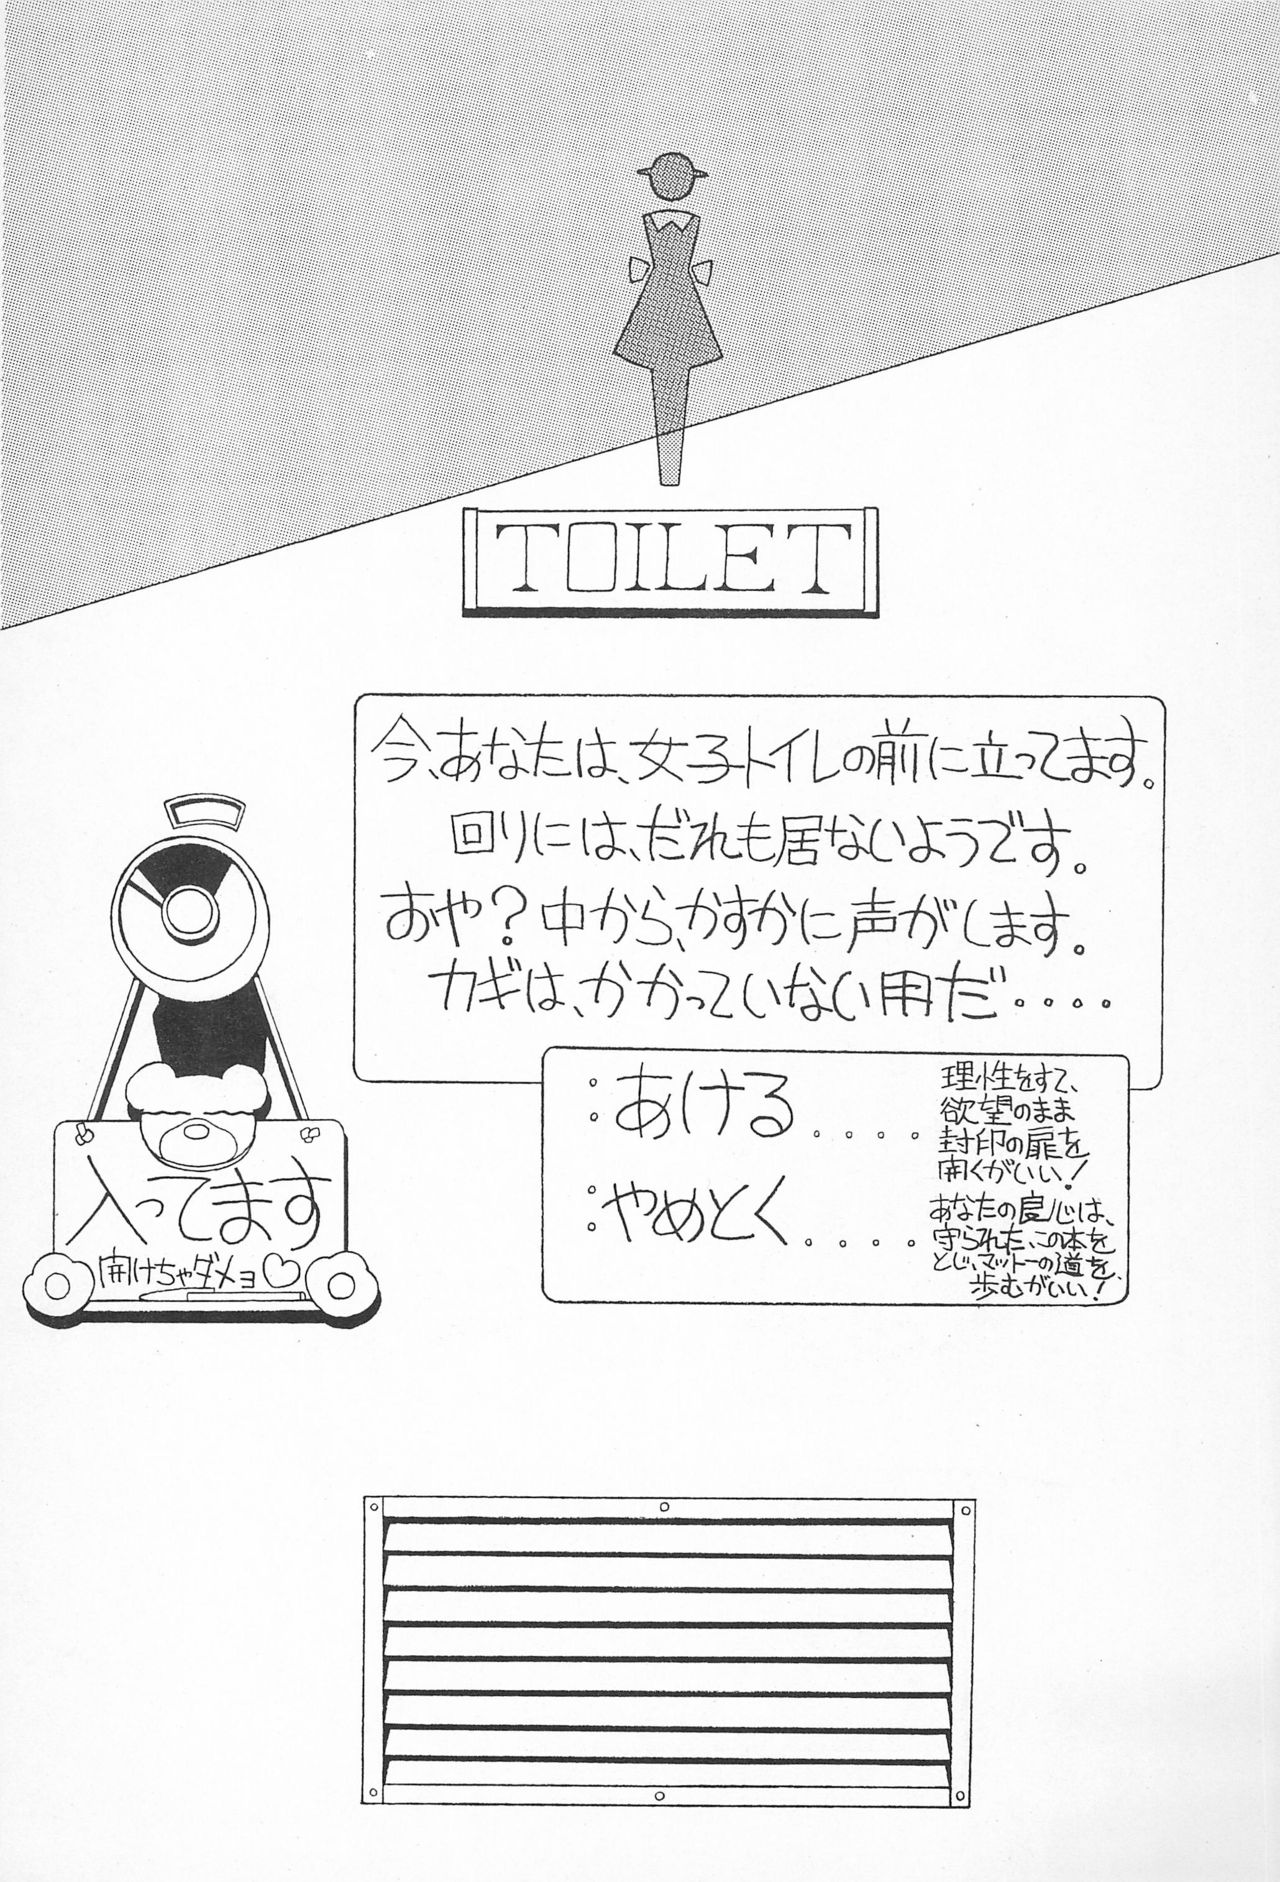 TOILET
今、あなたは、女子トイレの前に立ってます。
回りには、だれも居ないようです。
おや？中から、かすかに声がします。
カギは、かかっていない用だ・・・・
：あける・・・・
理性をすて、
欲望のまま
封印の扉を
開くがいい！
：やめとく・・・・
あなたの良心は、
守られた、この本を
とじ、マットーの道を、
歩むがいい！
入ってます
開けちゃダメョ♡